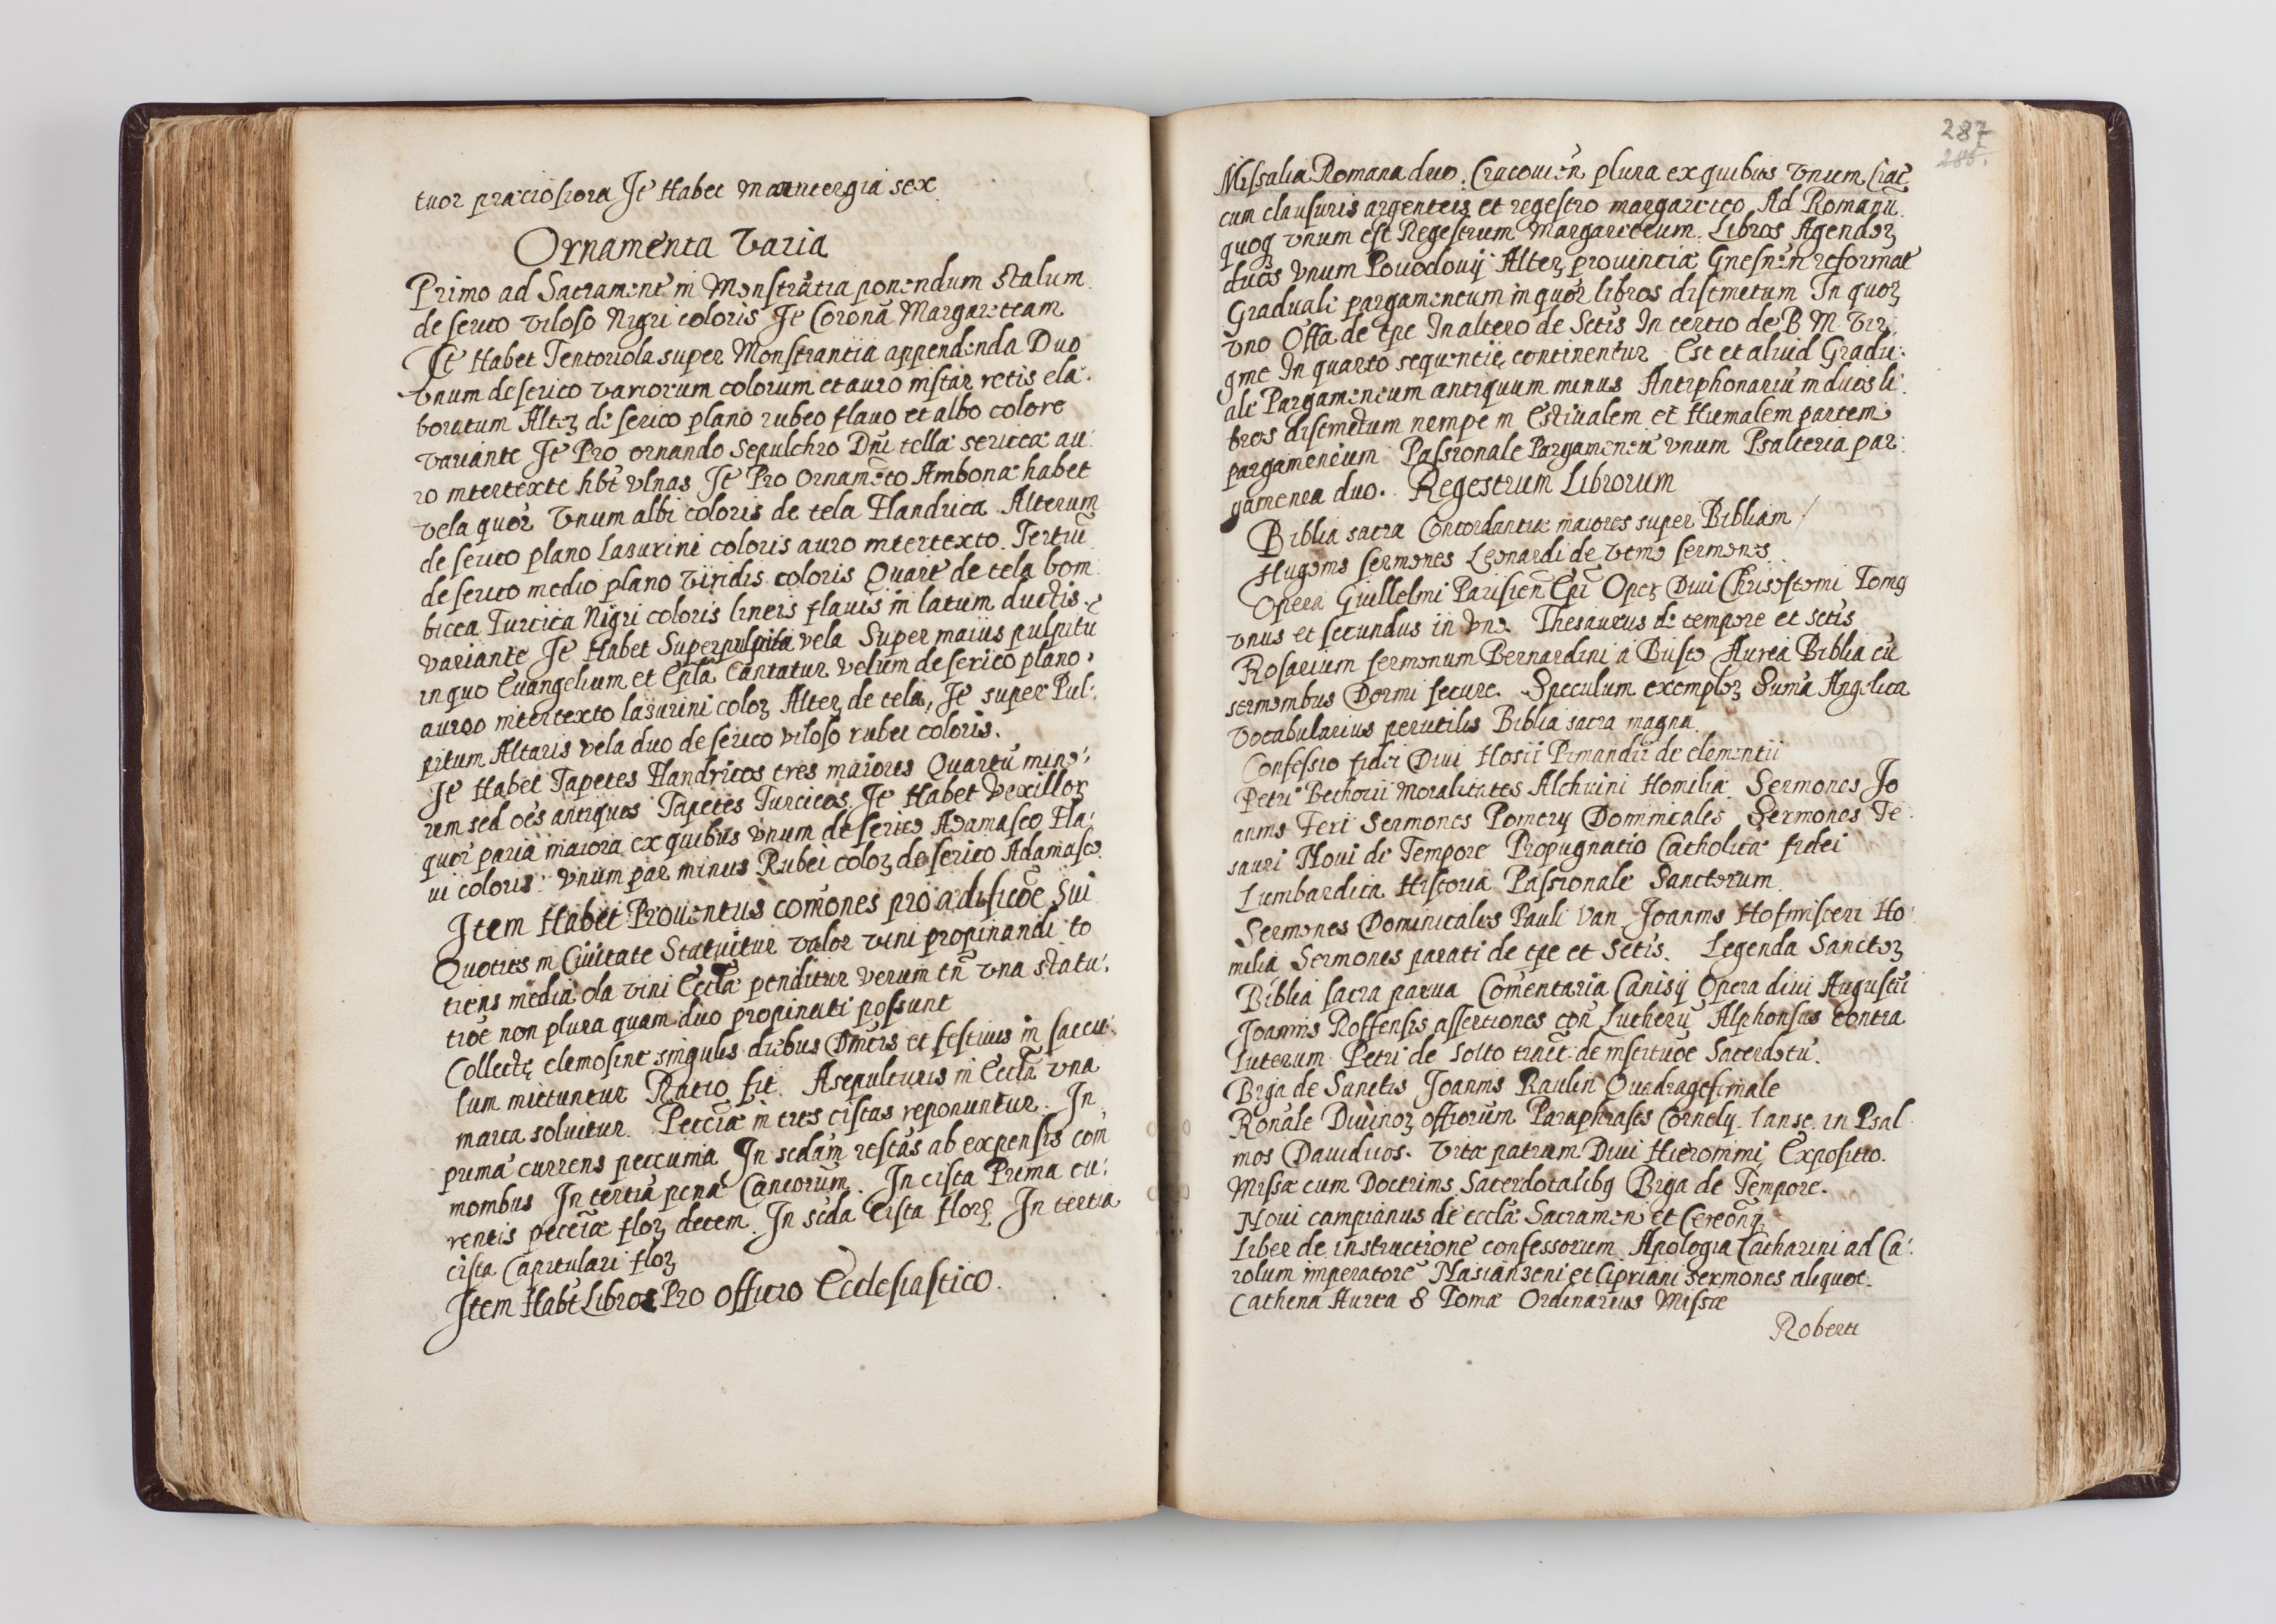 tuor præciosiora Jt Habet mantergia sex
Ornamenta Varia
Primo ad Sacrament in Monstratia ponendum Stalum
de serico viloso Nigri coloris Jt Coronã Margariteam
Jt Habet Tentoriola super Monstrantia appendenda Duo
Vnum de serico variorum colorum et auro instar retis ela:
boratum Alterz de serico plano rubeo flauo et albo colore
variante Jt Pro ornando Sepulchro Dñi tella sericea au:
ro intertexte hbt vlnas Jt Pro Ornamẽto Ambonæ habet
vela quor Vnum albi coloris de tela Flandrica Alterum
de serico plano Lasurini coloris auro intertexto. Tertiũ
de serico medio plano Viridis coloris Quart de tela bom
bicea Turcica Nigri coloris lineis flauis in latum ductis
variante Jt Habet Superpulpita vela Super maius pulpitũ
in quo Euangelium et Epla Cantatur velum de serico plano
auro intertexto lasurini coloz Alterz de tela, Jt super Pul:
pitum Altaris vela duo de serico viloso rubei coloris.
Jt Habet Tapetes Flandricos tres maiores Quartũ mino:
rem sed oẽs antiquos Tapetes Turcicos. Jt Habet Vexilloz
quor paria maiora ex quibus vnum de serico Adamasco Fla:
ui coloris: vnum par minus Rubei coloz de serico Adamasco
Item Habet Prouentus comõnes pro ædificõe Sui
Quoties in Ciuitate Statuitur valor vini propinandi to
tiens media ola vini Eccla penditur verum tñ vna statu:
tiõe non plura quam duo propinati possunt
Collectę elemosinę singulis diebus Dñicis et festiuis in saccu:
lum mittuntur Ratio fit. A sepulturis in Eccla vna
marca soluitur. Peccũia in tres cistas reponuntur. In
prima currens peccunia In scdam restãs ab expensis com
monibus In tertia pena Cantorum. In cista Prima cu:
rentis peccũiæ floz decem. In scda Cista floz In tertia
cista Capitulari floz
Item Habt Libros Pro officio Ecclesiastico.
287
285.
Missalia Romana duo. Cracouień plura ex quibus Vnum Crac
cum clausuris argenteis et regestro margariteo Ad Romanũ
quoq vnum est Regestrum Margariteum. Libros Agendoz
duos Vnum Pouodouij Alterz prouinciæ Gnesneń reformat
Graduale pargamentum in quor libros distinctum In quoz
vno Offa de tpe In altero de Sctis In tertio de B M Vir
gine In quarto sequentię continentur Est et aliud Gradu:
ale Pargameneum antiquum minus Antiphonariũ in duos li:
bros distinctum nempe in Estiualem et Hiemalem partem
pargamenium Passionale Pargamenẽu vnum Psalteria par:
gamenea duo. Regestrum Librorum
Biblia sacra Concordantiæ maiores super Bibliam /
Hugonis sermones Leonardi de Vtino sermones
Opera Guillelmi Parisieñ Epi Operz Diui Chrisostomi Tomg
vnus et secundus in Vno. Thesaurus de tempore et Sctis
Rosarium sermonum Bernardini a Busto Aurea Biblia cũ
sermonibus Dormi secure. Speculum exemploz Suma Angelica
Vocabularius perutilis Biblia sacra magna
Confessio fidei Diui Hosii Pimandri de elementii
Petri Bechorii Moralitates Alchuini Homiliæ Sermones Jo
annis Feri Sermones Pomerij Dominicales Sermones Te:
sauri Noui de Tempore Propugnatio Catholicæ fidei
Lumbardica Historia Passionale Sanctorum
Sermones Dominicales Pauli Van Joannis Hofmisteri Ho:
miliæ Sermones parati de tpe et Sctis. Legenda Sanctoz
Biblia sacra parua Comentaria Canisij Opera diui Augusti
Joannis Roffensis assertiones coñ Lutherũ Alphonsus Contra
Luterum Petri de Solto tract de institutõe Sacerdotũ.
Briga de Sanctis Joannis Raulin Quadragesimale
Ronale Diuinoz officiorum Paraphrasis Cornelij. Ianse. in Psal
mos Dauidicos. Vitæ patrum Diui Hieronimi Expositio.
Missæ cum Doctrinis Sacerdotalibg Briga de Tempore.
Noui campianus de eccla Sacramen et Cereõnij
Liber de instructione confessorum Apologia Catharini ad Ca:
rolum imperatorẽ Nasianzeni et Cipriani Sermones aliquot.
Cathena Aurea S Tomæ Ordinarius Missæ
Roberti